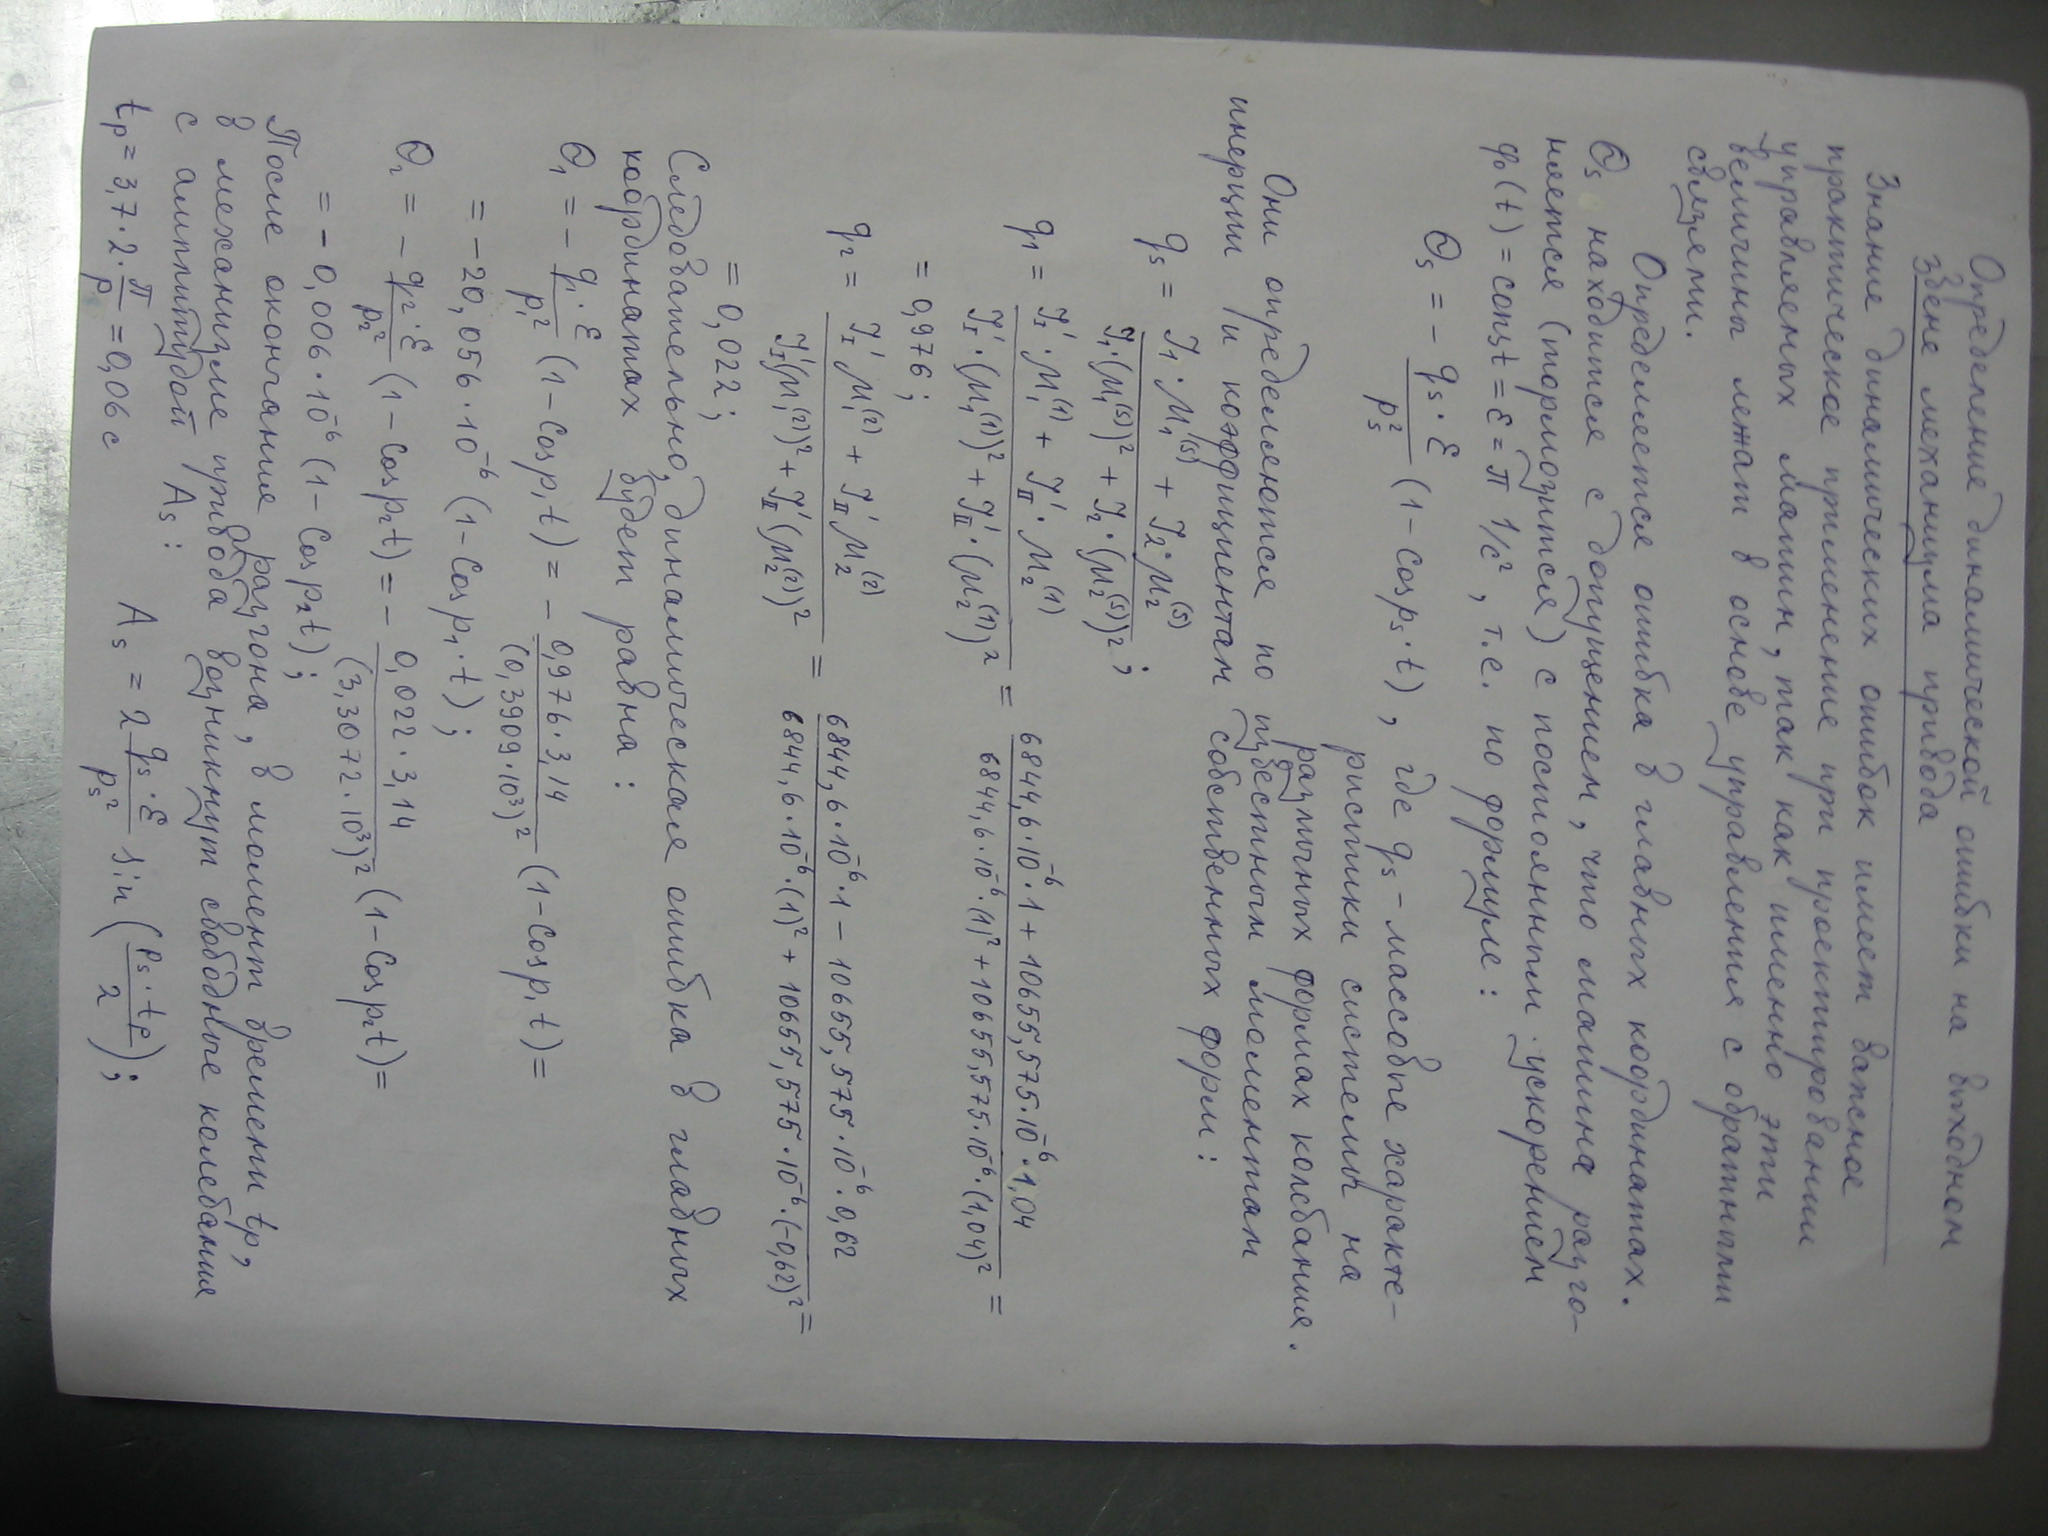 Определение динамической ошибки на выходном
звене механизма привода
Знание динамических ошибок имеет важное
практическое применение при проектировании
управляемых машин, так как именно эти
величины лежат в основе управления с обратными
связями.
Определяется ошибка в главных координатах.
Θs находится с допущением, что машина разго-
няется (тормозится) с постоянным ускорением
φ̈₀(t) = const = ε = π 1/с², т.е. по формуле:
Θs = − qs·ε / ps² (1 − cosps·t), где qs – массовые характе-
ристики системы на
различных формах колебания.
Они определяются по известным моментам
инерции и коэффициентам собственных форм:
qs = J₁·μ₁⁽ˢ⁾ + J₂·μ₂⁽ˢ⁾ / J₁·(μ₁⁽ˢ⁾)² + J₂·(μ₂⁽ˢ⁾)²;
q₁ = J'I·μ₁⁽¹⁾ + J'II·μ₂⁽¹⁾ / J'I·(μ₁⁽¹⁾)² + J'II·(μ₂⁽¹⁾)² = 6844,6·10⁻⁶·1 + 10655,575·10⁻⁶·1,04 / 6844,6·10⁻⁶·(1)² + 10655,575·10⁻⁶·(1,04)² =
= 0,976;
q₂ = J'I μ₁⁽²⁾ + J'II μ₂⁽²⁾ / J'I(μ₁⁽²⁾)² + J'II(μ₂⁽²⁾)² = 6844,6·10⁻⁶·1 − 10655,575·10⁻⁶·0,62 / 6844,6·10⁻⁶·(1)² + 10655,575·10⁻⁶·(−0,62)² =
= 0,022;
Следовательно, динамическая ошибка в главных
координатах будет равна:
Θ₁ = − q₁·ε / p₁² (1 − Cosp₁t) = − 0,976·3,14 / (0,3909·10³)² (1 − Cosp₁t) =
= −20,056·10⁻⁶ (1 − Cosp₁·t);
Θ₂ = − q₂·ε / p₂² (1 − Cosp₂t) = − 0,022·3,14 / (3,3072·10³)² (1 − Cosp₂t) =
= −0,006·10⁻⁶ (1 − Cosp₂t);
После окончания разгона, в момент времени tp,
в механизме привода возникнут свободные колебания
с амплитудой As:
tp = 3,7·2·π/p = 0,06 с As = 2 qs·ε / ps² sin(ps·tp / 2);